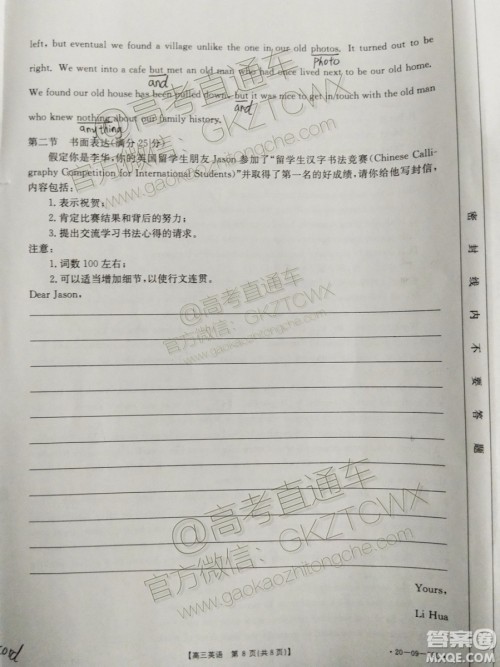 left, but eventual we found a village unlike the one in our old photos. It turned out to be
photo
right. We went into a cafe but met an old man who had once lived next to be our old home.
and
We found our old house has been pulled down, but it was nice to get in touch with the old man
and
who knew nothing about our family history.
anything
第二节 书面表达(满分25分)
假定你是李华,你的英国留学生朋友Jason参加了“留学生汉字书法竞赛(Chinese Calli-
graphy Competition for International Students)”并取得了第一名的好成绩,请你给他写封信,
内容包括:
1.表示祝贺;
2.肯定比赛结果和背后的努力;
3.提出交流学习书法心得的请求。
注意:
1.词数100左右;
2.可以适当增加细节,以使行文连贯。
Dear Jason,
Yours,
Li Hua
【高三英语 第8页(共8页)】
·20-09-
密封线内不要答题
@高考直通车
官方微信:GKZTCWX
www.gaokaozhitongche.com
@高考直通车
官方微信:GKZTCWX
www.gaokaozhitongche.com
@高考直通车
官方微信:GKZTCWX
www.gaokaozhitongche.com
答案圈
MXQE.COM